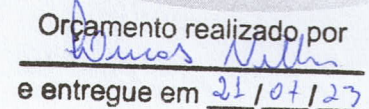 Orçamento realizado por
Lucas
e entregue em 21/07/23